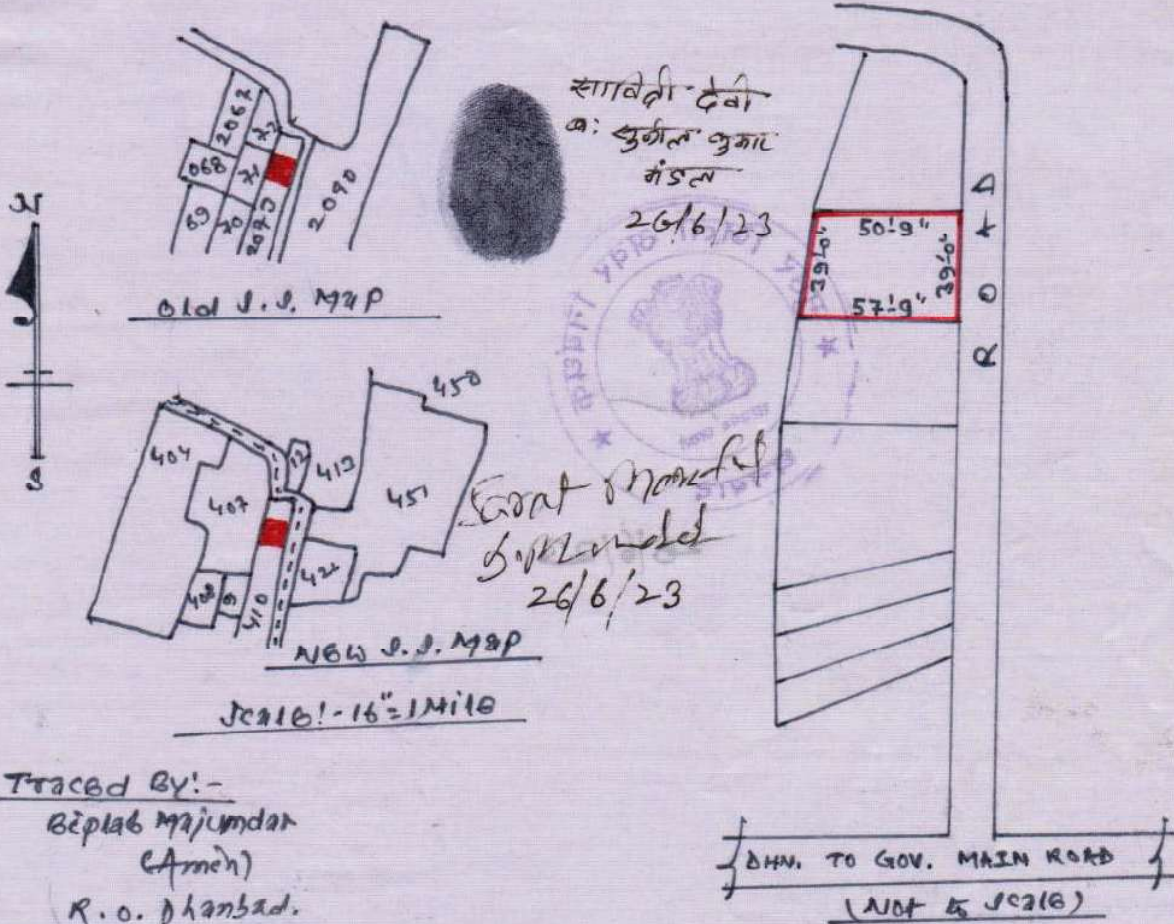 2067
72
068
71
69
70
2073
2090
Old S.S. Map
सावित्री देवी
सुनील कुमार
मंडल
26/6/23
N
S
450
404
12
413
451
407
422
408
9
410
26/6/23
New S.S. Map
Scale:- 16"=1 Mile
Traced By:-
Biplab Majumdar
(Amin)
R.O. Dhanbad.
50'-9"
39'-0"
39'-0"
57'-9"
ROAD
DHN. TO GOV. MAIN ROAD
(Not to Scale)